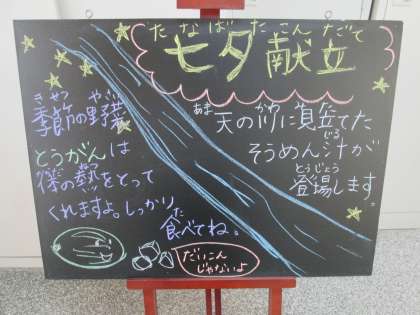 たなばたこんだて
七夕献立
きせつ やさい
季節の野菜
とうがんは
体の熱をとって
くれますよ。しっかり
食べてね。
あま がわ みた
天の川に見立てた
じる
そうめん汁が
とうじょう
登場します。
だいこん
じゃないよ